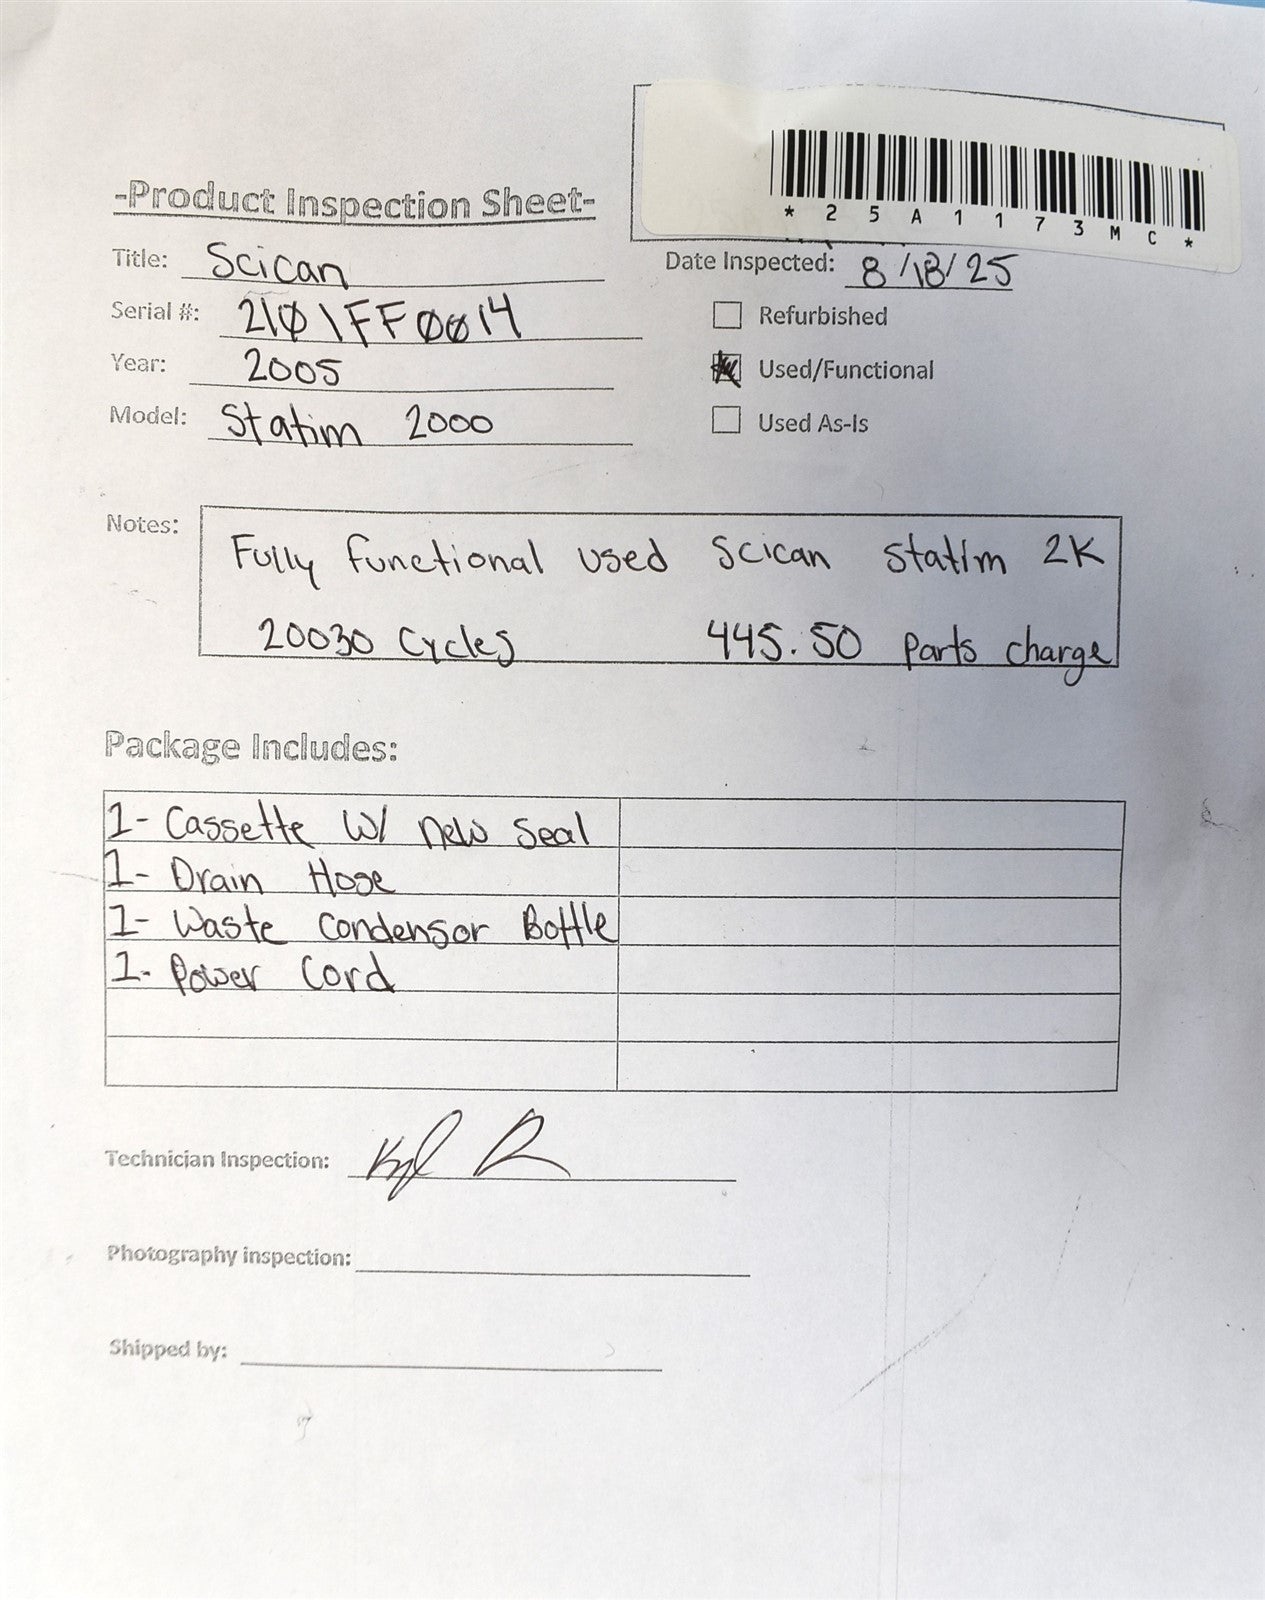 *25A1173MC*
-Product Inspection Sheet-
Title: Scican
Date Inspected: 8/18/25
Serial #: 2101FF0014
Refurbished
Year: 2005
Used/Functional
Model: Statim 2000
Used As-Is
Notes: Fully functional used Scican Statim 2K
20030 Cycles 445.50 parts charge
Package Includes:
1- Cassette W/ new Seal
1- Drain Hose
1- Waste Condensor Bottle
1- Power Cord
Technician Inspection:
Photography inspection:
Shipped by: